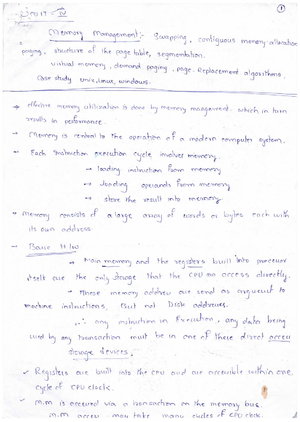 UNIT - IV
①
Memory Management:- Swapping, contiguous memory allocation
paging, structure of the page table, segmentation.
virtual memory, demand paging, page-Replacement algorithms,
case study unix, linux, windows.
→ effective memory utilization is done by memory management.. which in turn
results in performance.
→ Memory is central to the operation of a modern computer system.
→ Each instruction execution cycle involves memory.
→ loading instruction from memory
→ loading operands from memory
→ store the result into memory
→ Memory consists of a large array of words or bytes each with
its own address
→ Basic H/W
→ Main memory and the registers built into processor
itself are the only storage that the CPU can access directly.
→ These memory address are send as argument to
machine instructions, But not Disk addresses.
∴ any instruction in Execution, any data being
used by any transaction must be in one of these direct access
storage devices.
✓ Registers are built into the CPU and are accessible within one
cycle of CPU clock.
✓ M.M is accessed via a transaction on the memory bus.
M.M access may take many cycles of CPU clock.